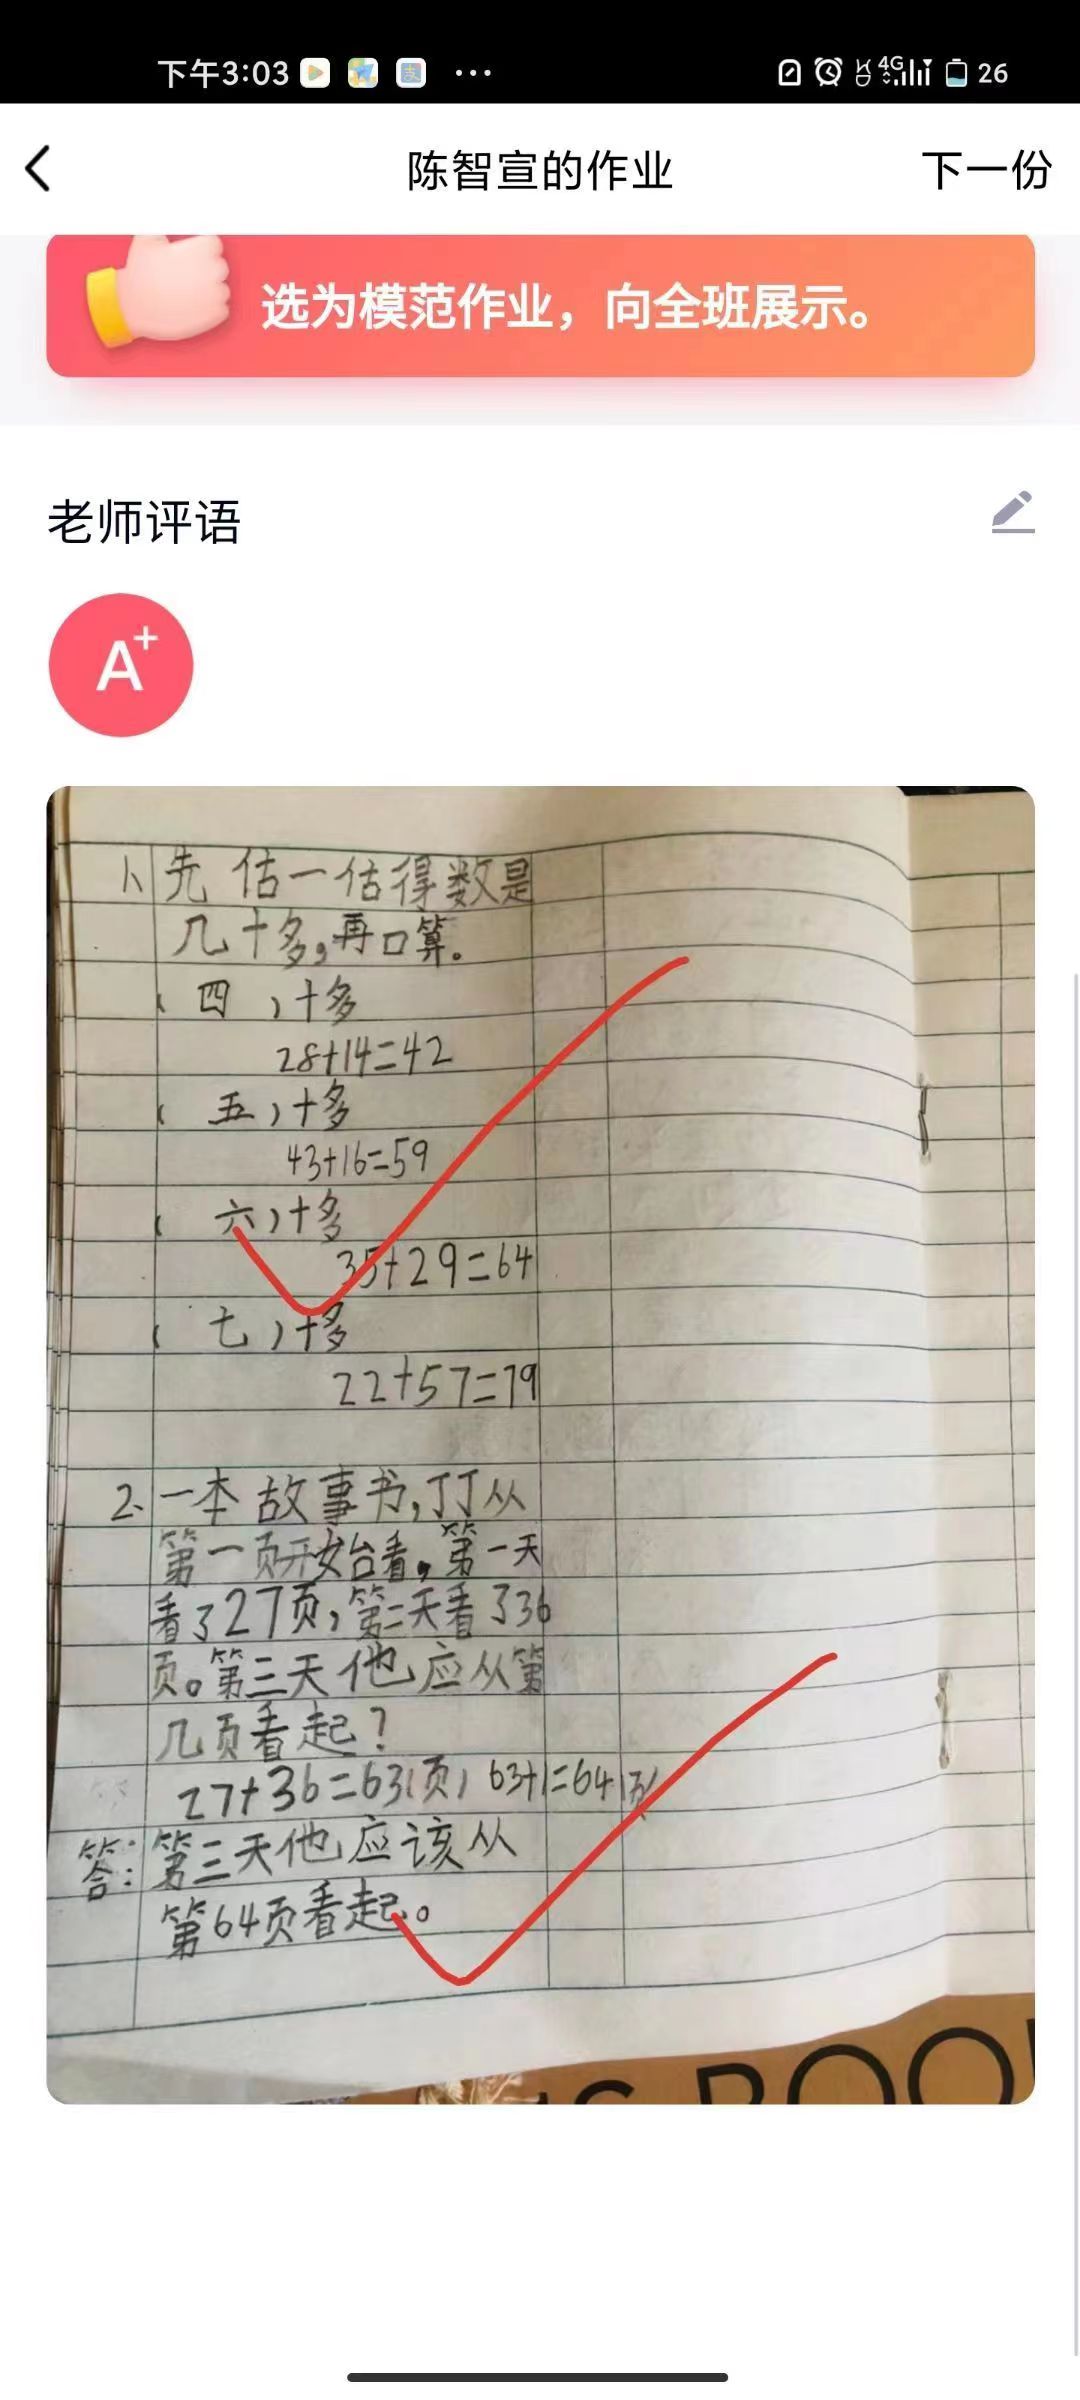 下午3:03 ··· 4G 26
陈智宣的作业 下一份
选为模范作业，向全班展示。
老师评语
A+
1、先估一估得数是
几十多，再口算。
（四）十多
28+14=42
（五）十多
43+16=59
（六）十多
35+29=64
（七）十多
22+57=79
2、一本故事书，丁丁从
第一页开始看，第一天
看了27页，第二天看了36
页。第三天他应从第
几页看起？
27+36=63（页） 63+1=64（页）
答：第三天他应该从
第64页看起。